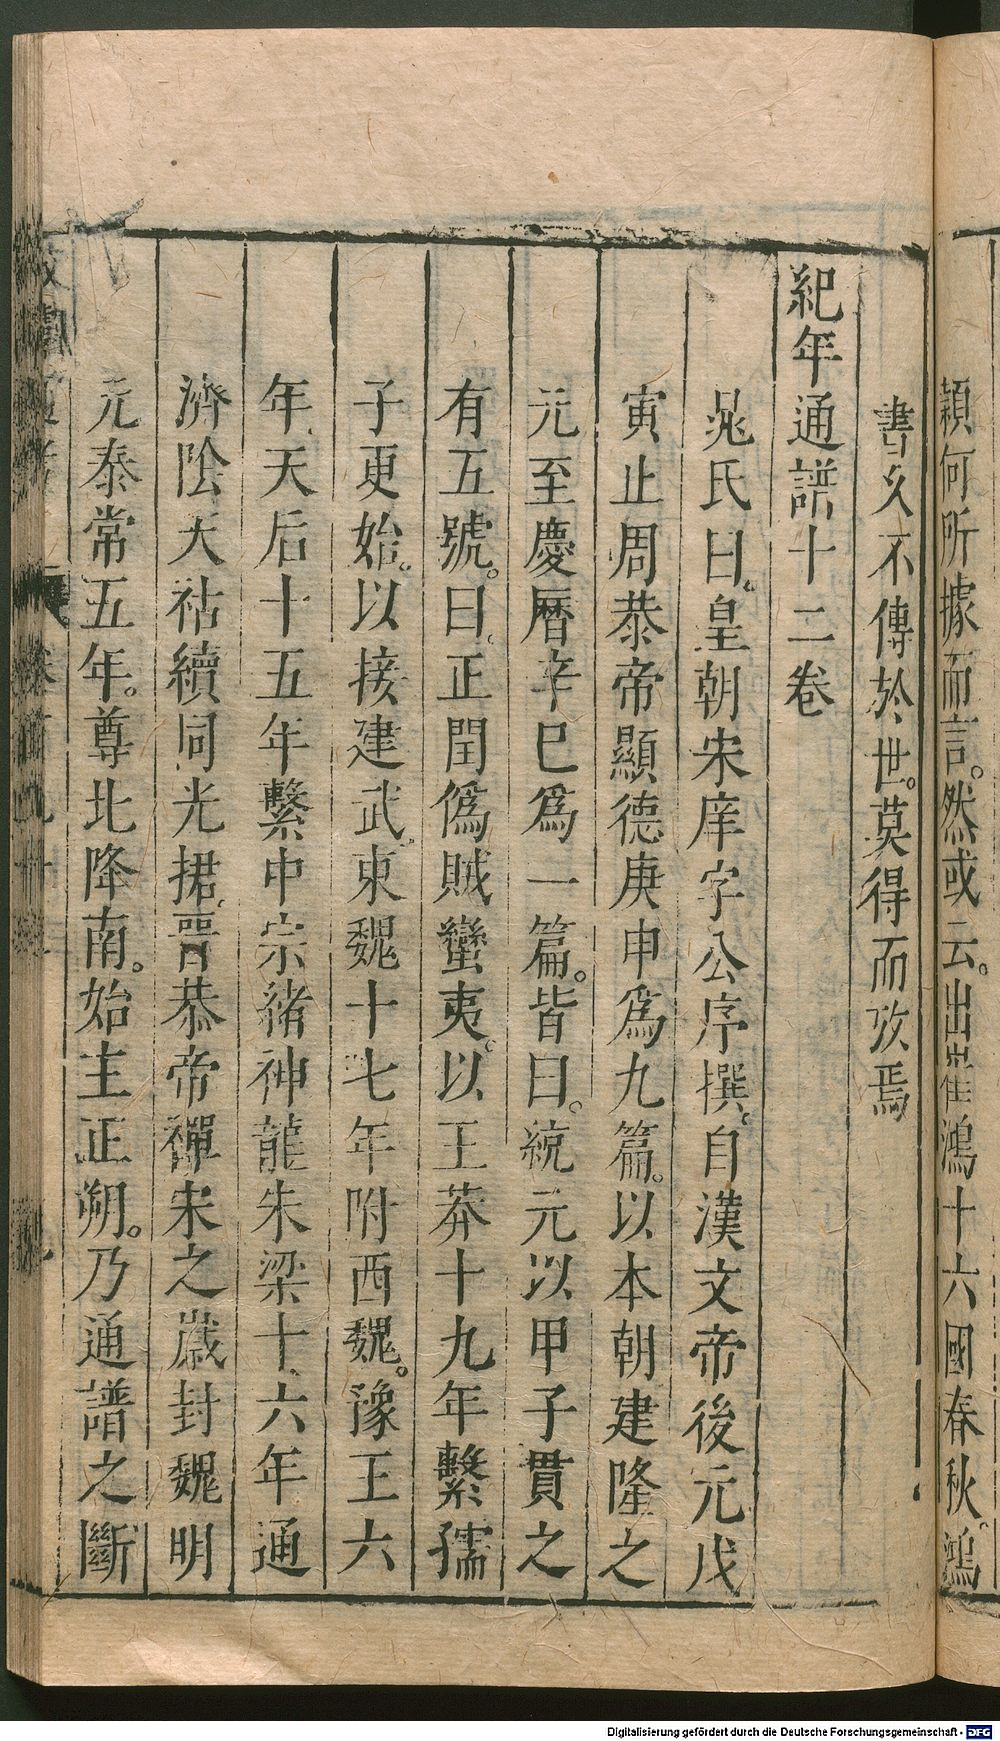 穎何所據而言。然或云。出崔鴻十六國春秋。鴻
書久不傳於世。莫得而攷焉
紀年通譜十二卷
晁氏曰。皇朝宋庠字公序撰。自漢文帝後元戊
寅止周恭帝顯德庚申爲九篇。以本朝建隆之
元至慶曆辛巳爲一篇。皆曰。統元以甲子貫之
有五號。曰。正閏僞賊蠻夷。以王莽十九年繫孺
子更始。以接建武。東魏十七年附西魏。豫王六
年天后十五年繫中宗緒神龍朱梁十六年通
濟陰天祐續同光捃晉恭帝禪宋之歲封魏明
元泰常五年。尊北降南。始主正朔。乃通譜之斷
Digitalisierung gefördert durch die Deutsche Forschungsgemeinschaft - DFG